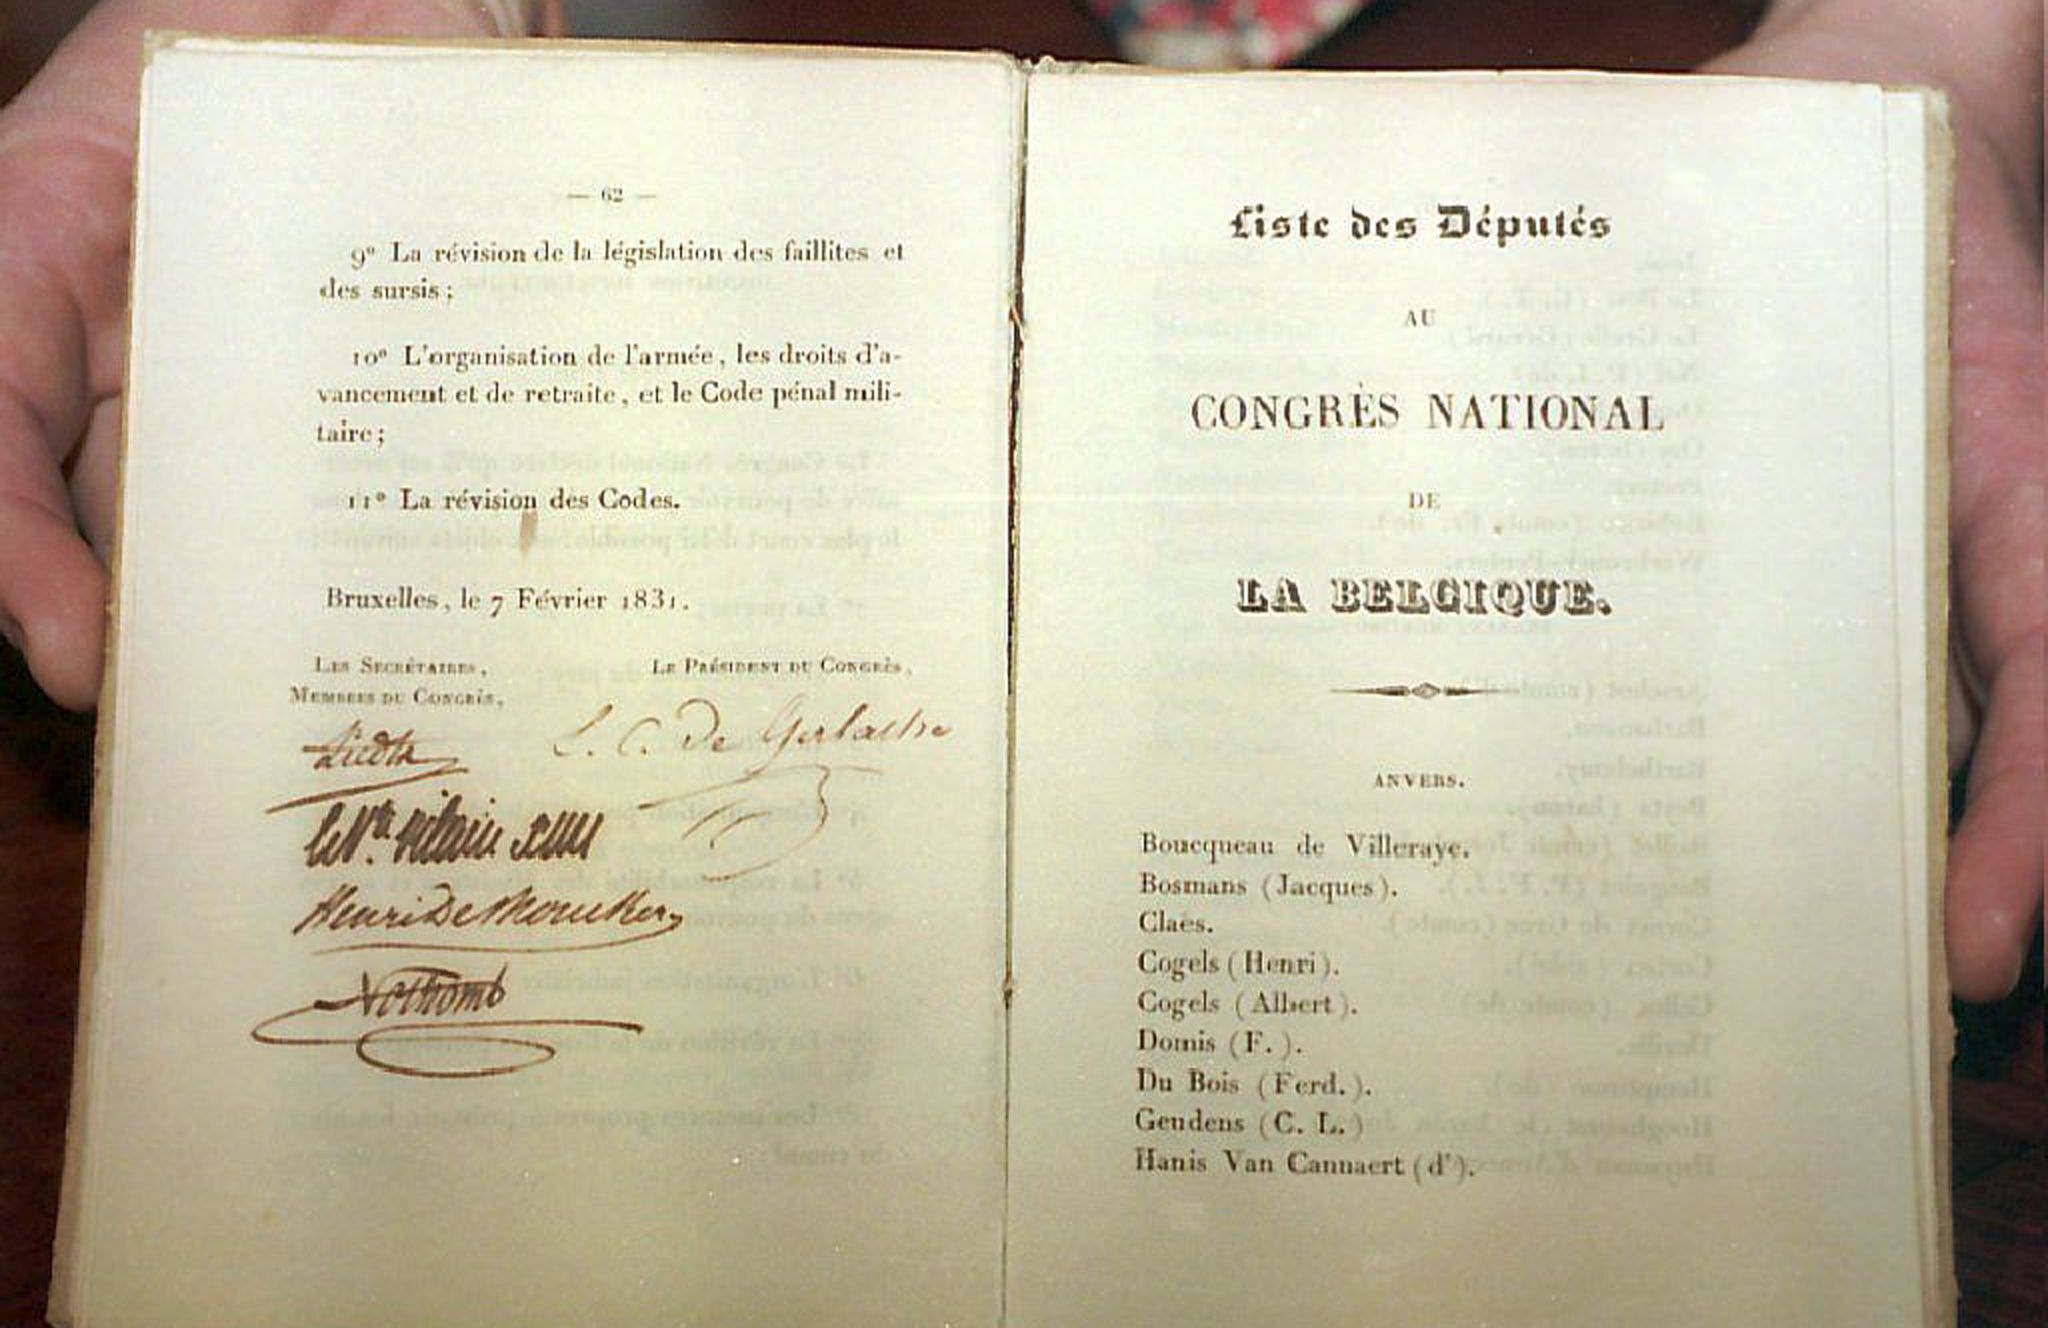 — 62 —
9° La révision de la législation des faillites et
des sursis ;
10° L'organisation de l'armée, les droits d'a-
vancement et de retraite, et le Code pénal mili-
taire ;
11° La révision des Codes.
Bruxelles, le 7 Février 1831.
Les Secrétaires,
Membres du Congrès,
Le Président du Congrès,
Liedts
E. C. De Gerlache
le Vte. Vilain XIIII
Henri De Brouckere
Nothomb
Liste des Députés
AU
CONGRÈS NATIONAL
DE
LA BELGIQUE.
ANVERS.
Boucqueau de Villeraye.
Bosmans (Jacques).
Claës.
Cogels (Henri).
Cogels (Albert).
Domis (F.).
Du Bois (Ferd.).
Geudens (C. L.)
Hanis Van Cannaert (d').